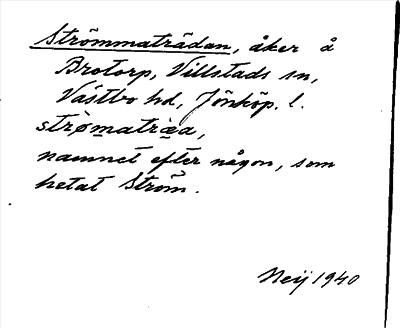 Strömmaträdan, åker å
Brotorp, Villstads sn,
Västbo hd, Jönköp. l.
strø̀m̲atræ̲a,
namnet efter någon, som
hetat Ström.
Neij 1940